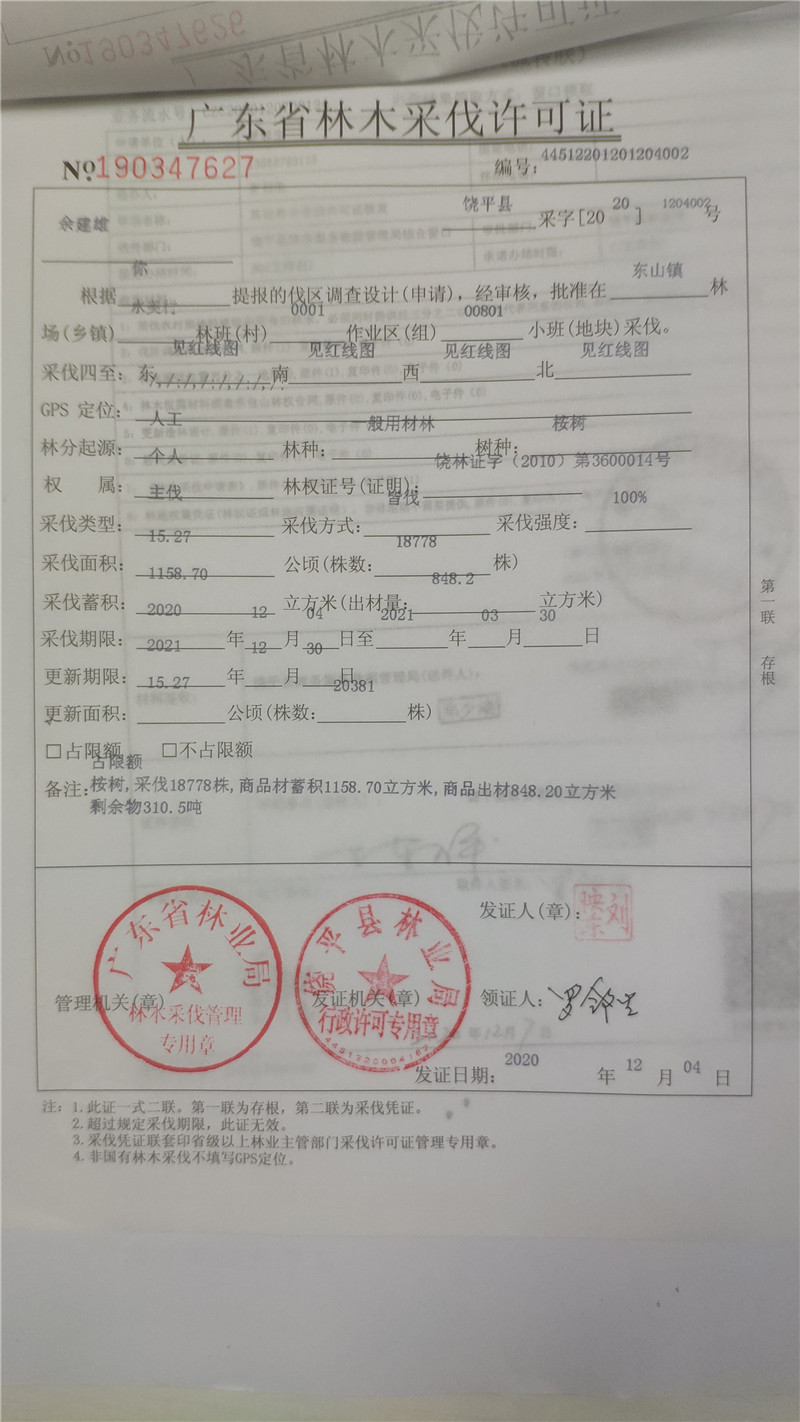 No190347626
广东省林木采伐许可证
广东省林木采伐许可证
No190347627 编号: 44512201201204002
余建雄 饶平县 采字[2020] 1204002号
根据 你 提报的伐区调查设计(申请), 经审核, 批准在 东山镇 林
场(乡镇) 水美村 林班(村) 0001 作业区(组) 00801 小班(地块)采伐。
采伐四至: 东 见红线图 南 见红线图 西 见红线图 北 见红线图
GPS 定位: /./././././.
林分起源: 人工 林种: 一般用材林 树种: 桉树
权 属: 个人 林权证号(证明): 饶林证字（2010）第3600014号
采伐类型: 主伐 采伐方式: 皆伐 采伐强度: 100%
采伐面积: 15.27 公顷(株数: 18778 株)
采伐蓄积: 1158.70 立方米(出材量: 848.2 立方米)
采伐期限: 2020 年 12 月 04 日至 2021 年 03 月 30 日
更新期限: 2021 年 12 月 30 日
更新面积: 15.27 公顷(株数: 20381 株)
□占限额 □不占限额
占限额
备注: 桉树, 采伐18778株, 商品材蓄积1158.70立方米, 商品出材848.20立方米
剩余物310.5吨
第一联 存根
发证人(章):
管理机关(章) 发证机关(章) 领证人:
广东省林业局
林木采伐管理
专用章
饶平县林业局
行政许可专用章
发证日期: 2020 年 12 月 04 日
注: 1.此证一式二联。第一联为存根, 第二联为采伐凭证。
2.超过规定采伐期限, 此证无效。
3.采伐凭证联套印省级以上林业主管部门采伐许可证管理专用章。
4.非国有林木采伐不填写GPS定位。